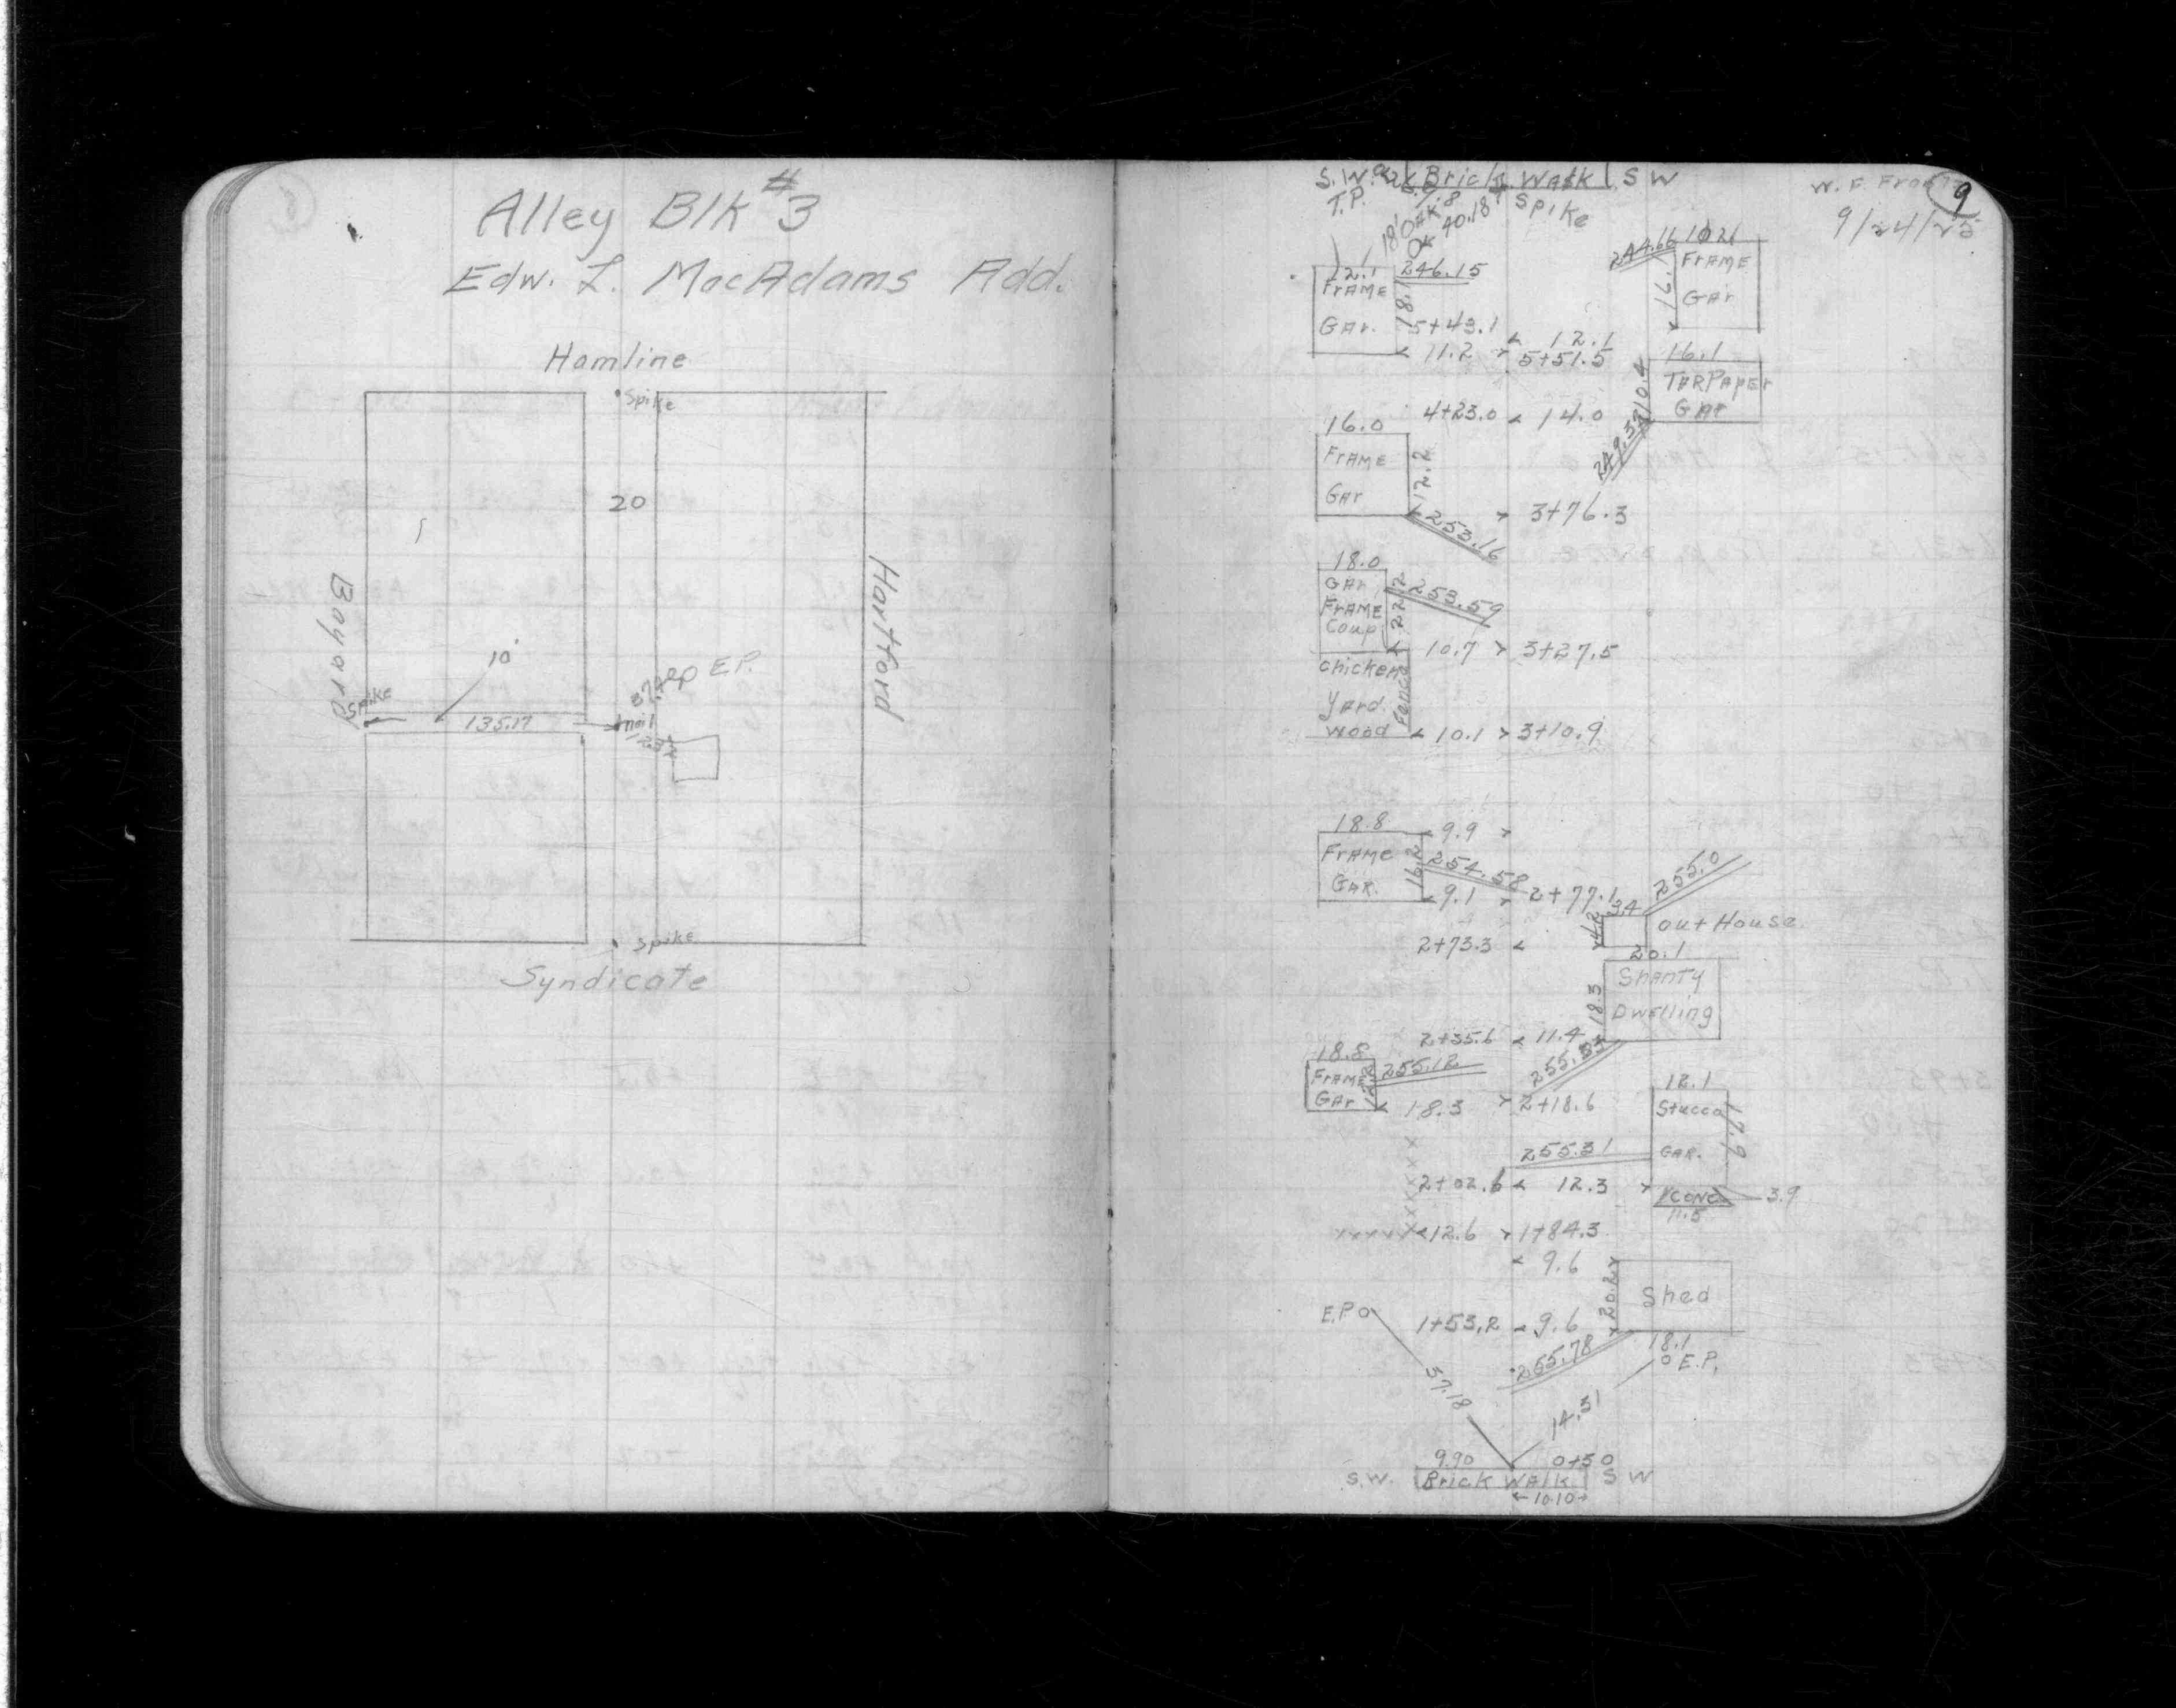 Alley Blk #3
Edw. L. MacAdams Add.
Hamline
Spike
20
Bayard
Hartford
10
E.P.
Spike
135.17
nail
12.37
Spike
Syndicate
9
S.W. Brick Walk S W
T.P. Spike
9/24/25
40.18
244.66
12.1 246.15
FrAME
GAr.
18.1
FrAME
GAr
16.1
5+43.1 12.1
11.2 5+51.5
16.1
TARPAPEr
GAr
10.4
4+23.0 14.0
16.0
FrAME
GAr
12.2
249.53
3+76.3
253.16
18.0
GAr
FrAME
Coup
22.2
253.59
10.7 3+27.5
chicken
Yard.
wood
Fence
10.1 3+10.9
18.8 9.9
FrAME
GAR.
16.2
254.58
9.1 2+77.1
255.0
3.4
4.2
out House.
2+73.3
20.1
Shanty
Dwelling
18.5
2+35.6 11.4
255.83
18.8
FrAME
GAr
12.2
255.12
18.3 2+18.6
12.1
Stucco
GAR.
17.9
255.31
2+02.6 12.3
CONC
3.9
11.5
xxxxx 12.6 1+84.3
9.6
Shed
20.2
E.P.
1+53.2 9.6
18.1
E.P.
255.78
37.18
14.31
9.90 0+50
S.W. Brick WAlk S W
10.10